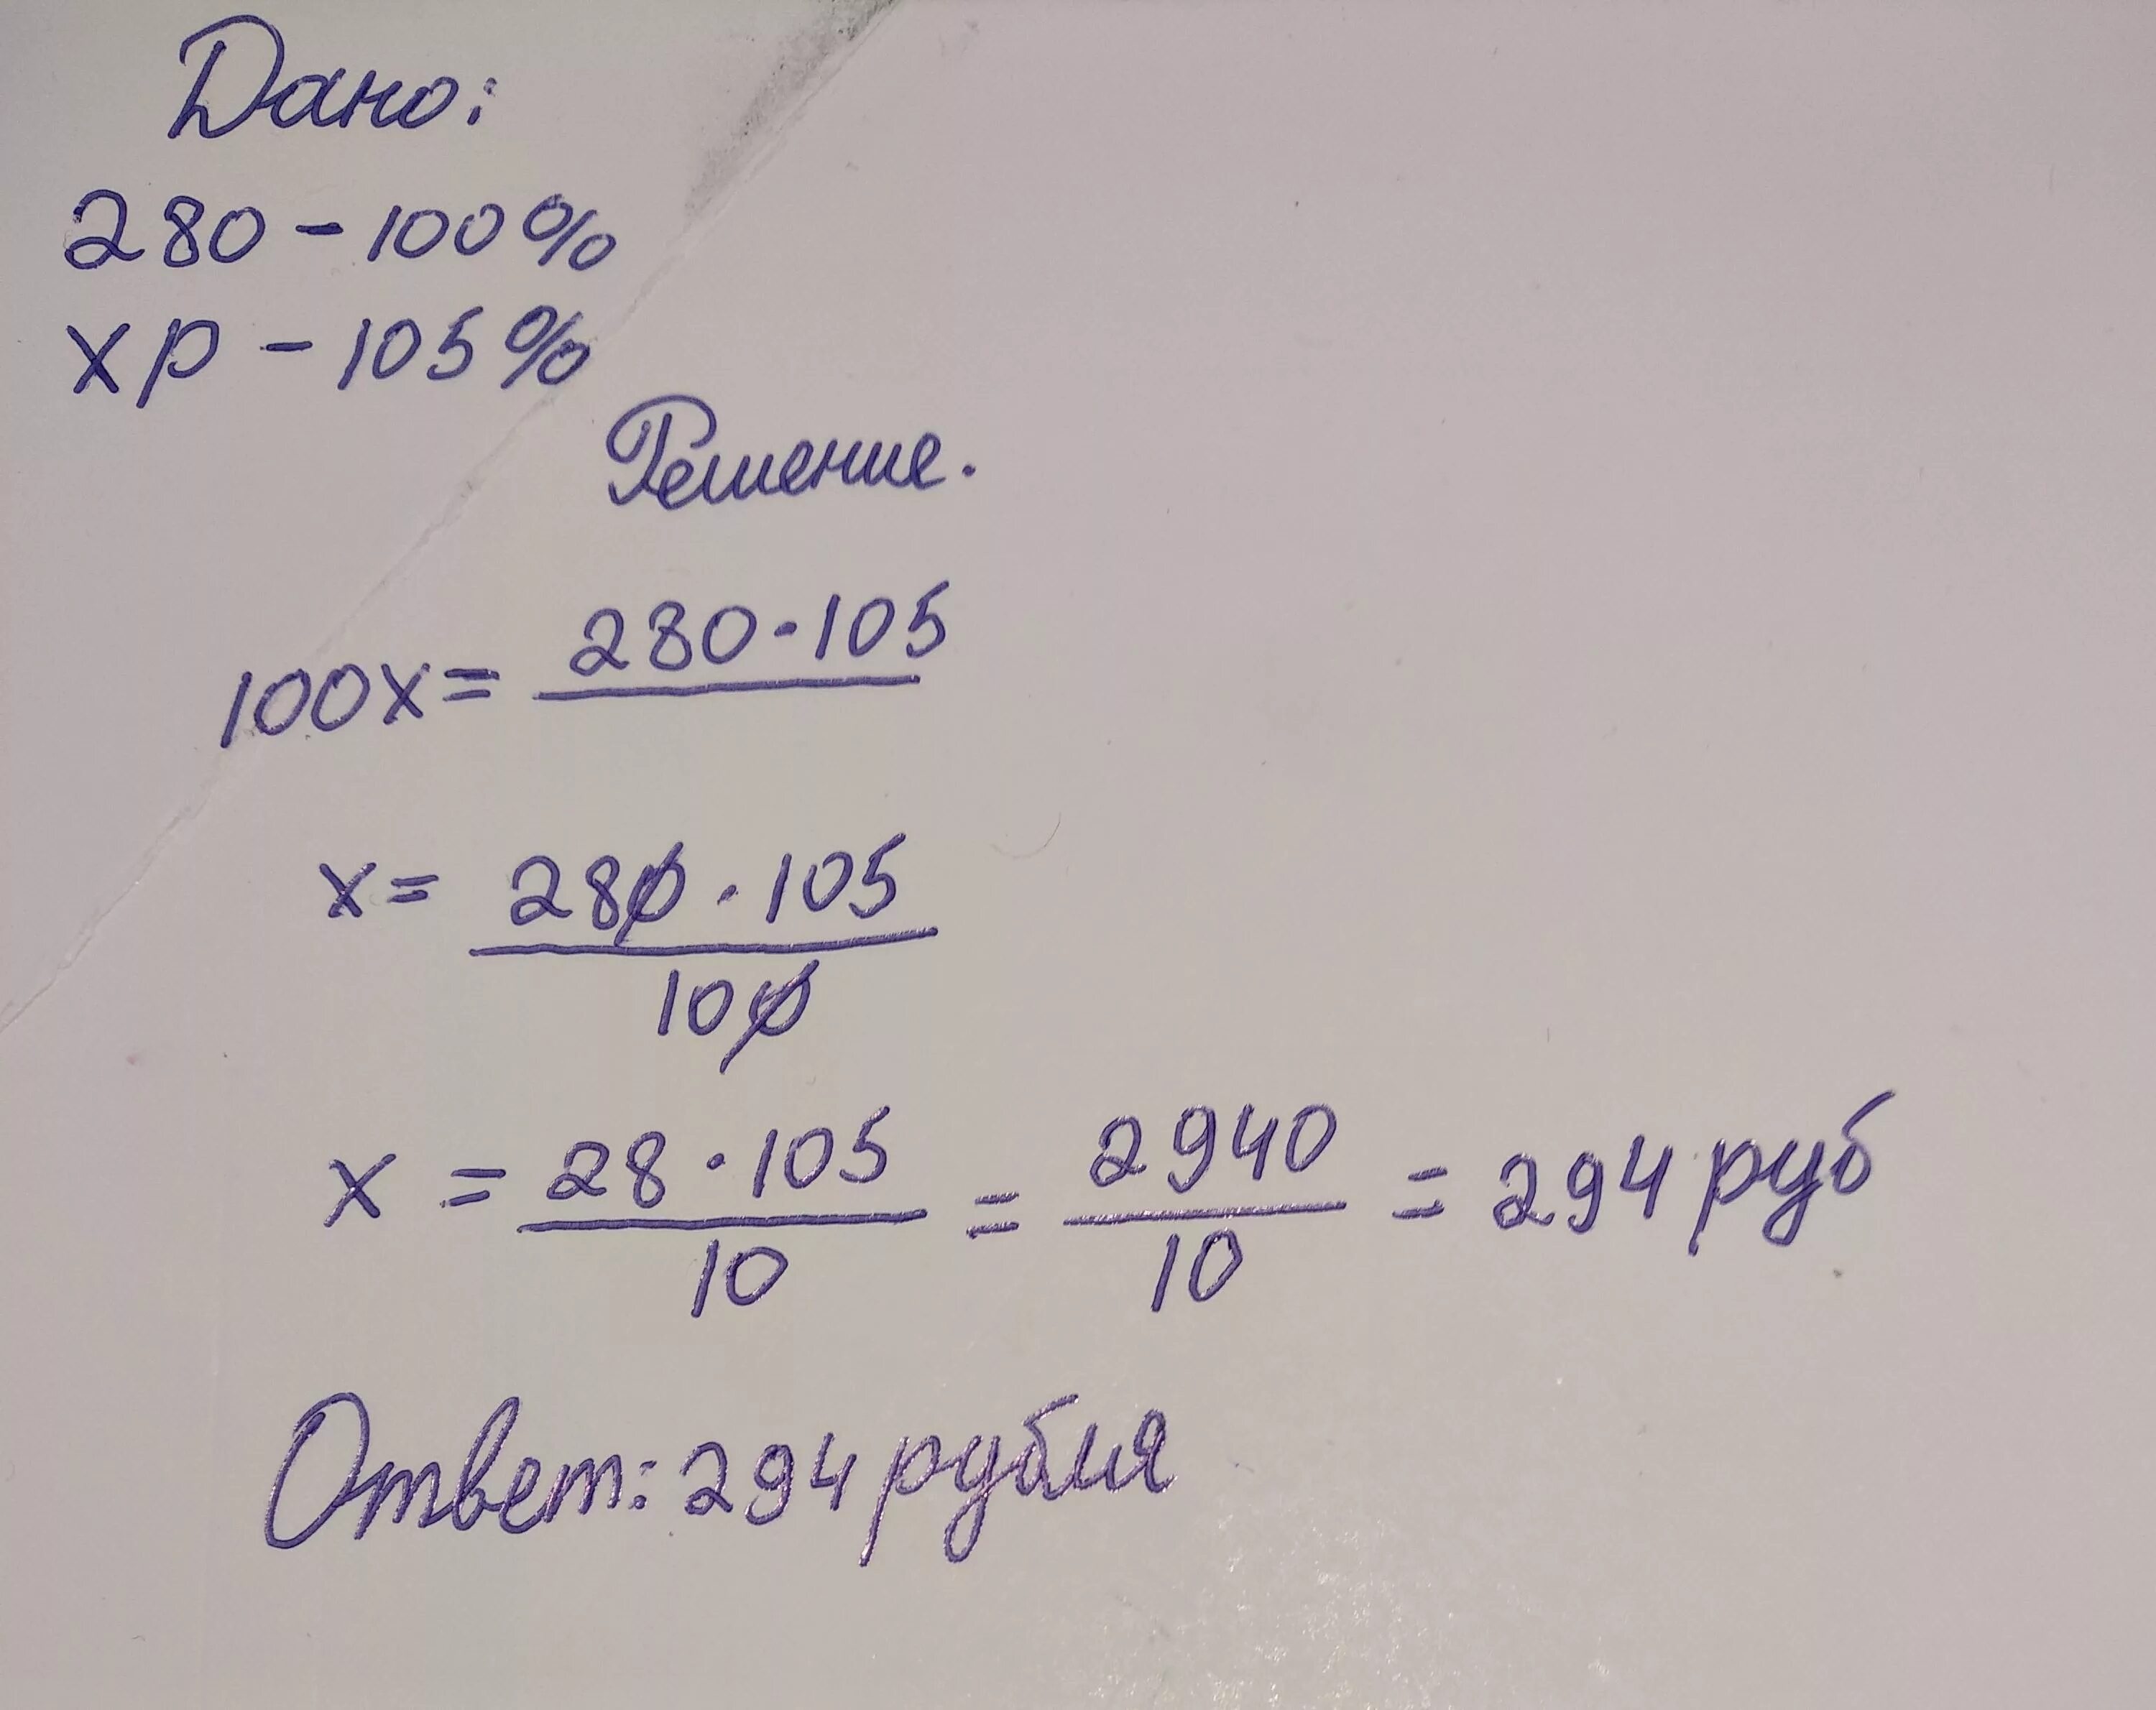 Дано:
280 - 100%
х р - 105%
Решение.
100х = 280 · 105
х = 280 · 105 / 100
х = 28 · 105 / 10 = 2940 / 10 = 294 руб
Ответ: 294 рубля